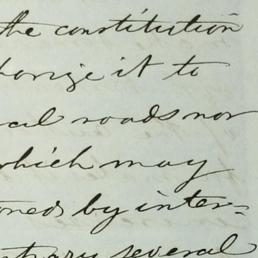 the constitution
horize it to
cal roads nor
which may
oned by inter=
trary several